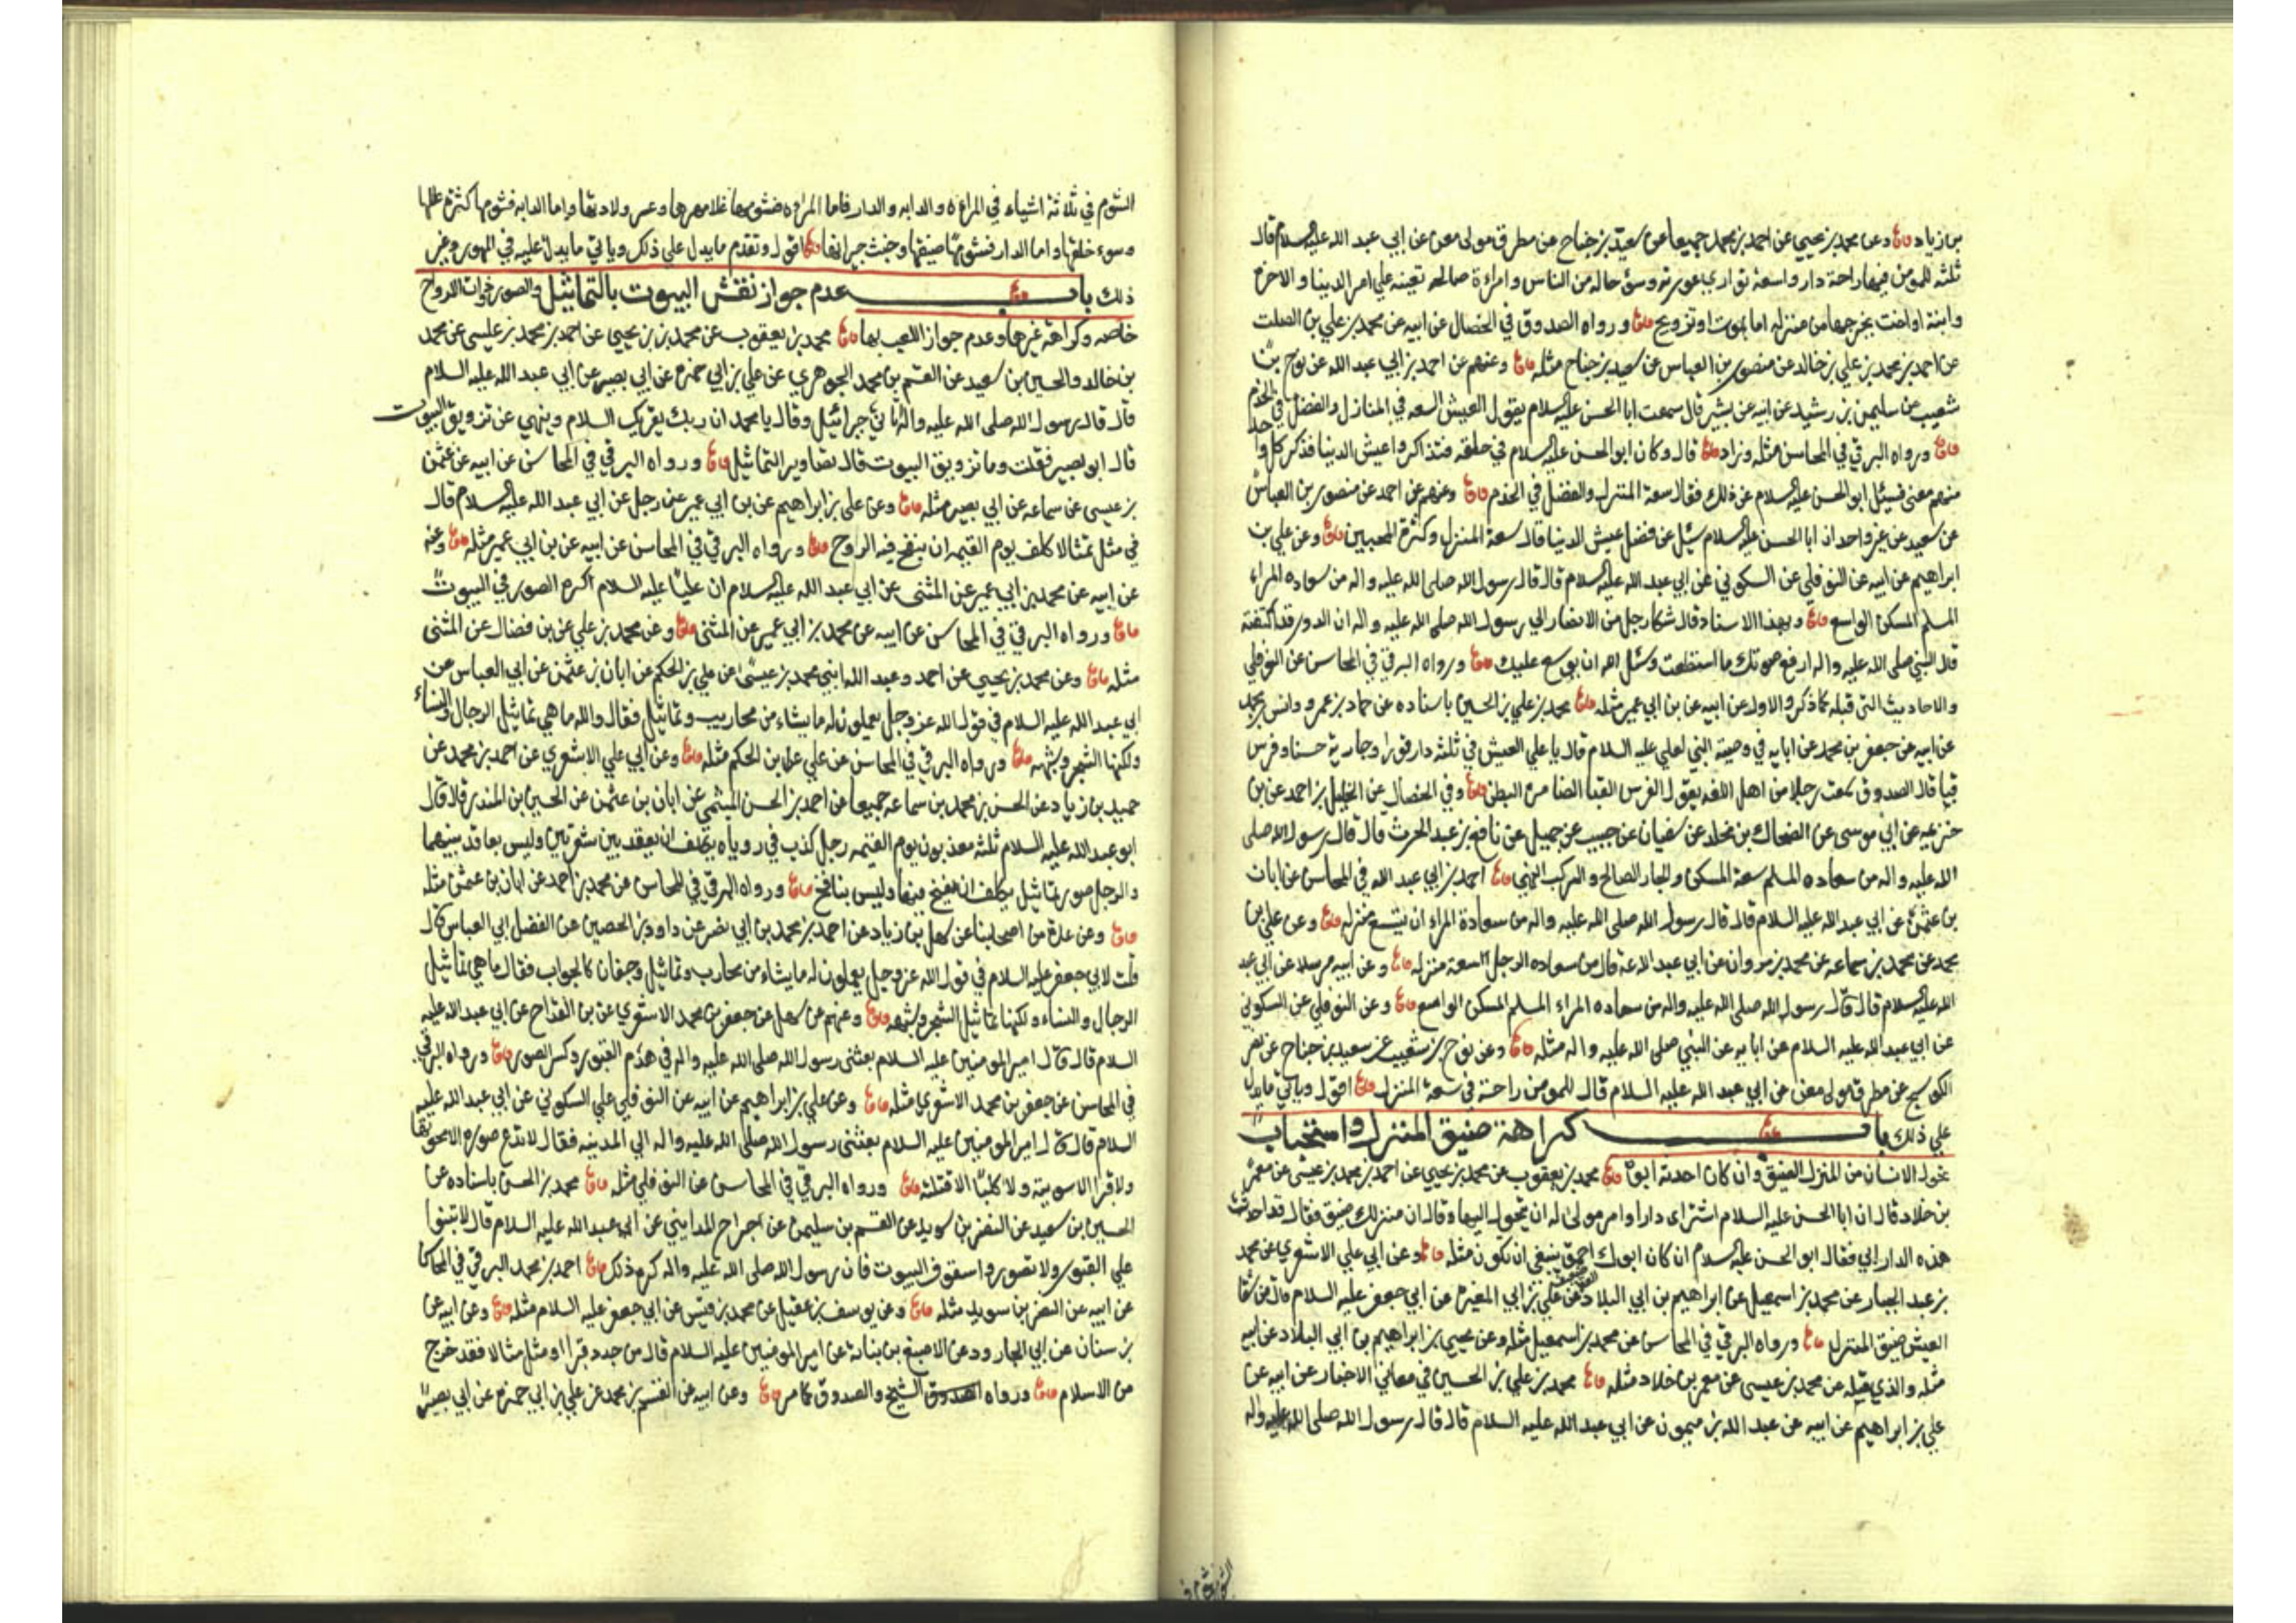 بن زياد وعن محمد بن يحيى عن احمد بن محمد جميعا عن سعيد بن جناح عن مطرف مولى معن عن ابي عبد الله عليه السلام قال
ثلثه للمومن فيها راحة دار واسعة تواري عورته وسوء حاله من الناس وامراءة صالحه تعينه على امر الدنيا والاخرة
وابنة او اخت يخرجها من منزله اما بموت او تزويج ورواه الصدوق في الخصال عن ابيه عن محمد بن علي بن الصلت
عن احمد بن محمد بن علي بن خالد عن منصور بن العباس عن سعيد بن جناح مثله وعنهم عن احمد بن ابي عبد الله عن نوح بن
شعيب عن سليمن بن رشيد عن ابيه عن بشير قال سمعت ابا الحسن عليه السلام يقول العيش السعه في المنازل والفضل في الخدم
ورواه البرقي في المحاسن مثله وزاد قال وكان ابو الحسن عليه السلام في حلقه فتذاكروا عيش الدنيا فذكر كل واحد
منهم معنى فسئل ابو الحسن عليه السلام عن ذلك فقال سعة المنزل والفضل في الخدم وعنهم عن احمد عن منصور بن العباس
عن سعيد عن غير واحد ان ابا الحسن عليه السلام سئل عن فضل عيش الدنيا قال سعة المنزل وكثرة المحبين وعن علي بن
ابراهيم عن ابيه عن النوفلي عن السكوني عن ابي عبد الله عليه السلام قال قال رسول الله صلى الله عليه واله من سعاده المراء
المسلم المسكن الواسع وبهذا الاسناد قال شكا رجل من الانصار الى رسول الله صلى الله عليه واله ان الدور قد اكتنفته
قال النبي صلى الله عليه واله ارفع صوتك ما استطعت وسئل الله ان يوسع عليك ورواه البرقي في المحاسن عن النوفلي
والاحاديث التي قبله كما ذكر والاول عن ابيه عن بن ابي عمير مثله محمد بن علي بن الحسين باسناده عن حماد بن عمرو وانس بن محمد
عن ابيه عن جعفر بن محمد عن ابايه في وصية النبي لعلي عليه السلام قال يا علي العيش في ثلثه دار قوراء وجارية حسناء وفرس
قباء قال الصدوق سمعت رجلا من اهل اللغه يقول الفرس القباء الضامر البطن وفي الخصال عن الخليل بن احمد عن بن
خزيمه عن ابي موسى عن الضحاك بن مخلد عن سفيان عن حبيب عن جميل عن نافع بن عبد الحرث قال قال رسول الله صلى
الله عليه واله من سعاده المسلم سعة المسكن والجار الصالح والمركب الهني احمد بن ابي عبد الله في المحاسن عن ابان
بن عثمن عن ابي عبد الله عليه السلام قال قال رسول الله صلى الله عليه واله من سعادة المراء ان يتسع منزله وعن علي بن
محمد عن محمد بن سماعه عن محمد بن مروان عن ابي عبد الله ع قال من سعاده الرجل السعة منزله وعن ابيه مرسلا عن ابي عبد
الله عليه السلام قال قال رسول الله صلى الله عليه واله من سعاده المراء المسلم المسكن الواسع وعن النوفلي عن السكوني
عن ابي عبد الله عليه السلام عن ابايه عن النبي صلى الله عليه واله مثله وعن نوح بن شعيب عن سعيد بن جناح عن نصر
الكوسج عن مطرف مولى معن عن ابي عبد الله عليه السلام قال للمومن راحة في سعة المنزل اقول وياتي ما يدل
على ذلك باب كراهة ضيق المنزل واستحباب
تحول الانسان من المنزل الضيق وان كان احدثه ابوه محمد بن يعقوب عن محمد بن يحيى عن احمد بن محمد بن عيسى عن معمر
بن خلاد قال ان ابا الحسن عليه السلام اشترى دارا وامر مولى له ان يتحول اليها وقال ان منزلك ضيق فقال قد احدث
هذه الدار ابي فقال ابو الحسن عليه السلام ان كان ابوك احمق ينبغي ان تكون مثله وعن ابي علي الاشعري عن محمد
بن عبد الجبار عن محمد بن اسمعيل عن ابراهيم بن ابي البلاد عن علي بن ابي المغيرة عن ابي جعفر عليه السلام قال من شقا
العيش ضيق المنزل ورواه البرقي في المحاسن عن محمد بن اسمعيل مثله وعن يحيى بن ابراهيم بن ابي البلاد عن ابيه
مثله والذي قبله عن محمد بن عيسى عن معمر بن خلاد مثله محمد بن علي بن الحسين في معاني الاخبار عن ابيه عن
علي بن ابراهيم عن ابيه عن عبد الله بن ميمون عن ابي عبد الله عليه السلام قال قال رسول الله صلى الله عليه واله
الشوم في
الشوم في ثلاثة اشياء في المراءه والدابه والدار فاما المراءه فشومها غلا مهرها وعسر ولادتها واما الدابه فشومها كثرة عللها
وسوء خلقها واما الدار فشومها ضيقها وخبث جيرانها اقول وتقدم ما يدل على ذلك وياتي ما يدل عليه في المهور وغير
ذلك باب عدم جواز نقش البيوت بالتماثيل والصور ذوات الارواح
خاصه وكراهة غيرها وعدم جواز اللعب بها محمد بن يعقوب عن محمد بن يحيى عن احمد بن محمد بن عيسى عن محمد
بن خالد والحسين بن سعيد عن القسم بن محمد الجوهري عن علي بن ابي حمزه عن ابي بصير عن ابي عبد الله عليه السلام
قال قال رسول الله صلى الله عليه واله اتاني جبرائيل وقال يا محمد ان ربك يقريك السلام وينهى عن تزويق البيوت
قال ابو بصير فقلت وما تزويق البيوت قال تصاوير التماثيل ورواه البرقي في المحاسن عن ابيه عن عثمن
بن عيسى عن سماعه عن ابي بصير مثله وعن علي بن ابراهيم عن بن ابي عمير عن رجل عن ابي عبد الله عليه السلام قال
في مثل تمثالا كلف يوم القيمه ان ينفخ فيه الروح ورواه البرقي في المحاسن عن ابيه عن بن ابي عمير مثله وعنه
عن ابيه عن محمد بن ابي عمير عن المثنى عن ابي عبد الله عليه السلام ان عليا عليه السلام اكره الصور في البيوت
ورواه البرقي في المحاسن عن ابيه عن محمد بن ابي عمير عن المثنى وعن محمد بن علي عن بن فضال عن المثنى
مثله وعن محمد بن يحيى عن احمد وعبد الله ابني محمد بن عيسى عن علي بن الحكم عن ابان بن عثمن عن ابي العباس عن
ابي عبد الله عليه السلام في قول الله عز وجل يعملون له ما يشاء من محاريب وتماثيل فقال والله ما هي تماثيل الرجال والنساء
ولكنها الشجر وشبهه ورواه البرقي في المحاسن عن علي بن الحكم مثله وعن ابي علي الاشعري عن احمد بن محمد عن
حميد بن زياد عن الحسن بن محمد بن سماعه جميعا عن احمد بن الحسن الميثمي عن ابان بن عثمن عن الحسين بن المنذر قال قال
ابو عبد الله عليه السلام ثلثه معذبون يوم القيمه رجل كذب في روياه يكلف ان يعقد بين شعرتين وليس بعاقد بينهما
والرجل صور تماثيل يكلف ان ينفخ فيها وليس بنافخ ورواه البرقي في المحاسن عن محمد بن احمد عن ابان بن عثمن مثله
وعن عدة من اصحابنا عن سهل بن زياد عن احمد بن محمد بن ابي نصر عن داود بن الحصين عن الفضل ابي العباس قال
قلت لابي جعفر عليه السلام في قول الله عز وجل يعملون له ما يشاء من محاريب وتماثيل وجفان كالجواب فقال ما هي تماثيل
الرجال والنساء ولكنها تماثيل الشجر وشبهه وعنهم عن سهل عن جعفر بن محمد الاشعري عن بن القداح عن ابي عبد الله عليه
السلام قال قال امير المومنين عليه السلام بعثني رسول الله صلى الله عليه واله في هدم القبور وكسر الصور ورواه البرقي
في المحاسن عن جعفر بن محمد الاشعري مثله وعن علي بن ابراهيم عن ابيه عن النوفلي علي السكوني عن ابي عبد الله عليه
السلام قال قال امير المومنين عليه السلام بعثني رسول الله صلى الله عليه واله الى المدينه فقال لا تدع صوره الا محوتها
ولا قبرا الا سويته ولا كلبا الا قتلته ورواه البرقي في المحاسن عن النوفلي مثله محمد بن الحسن باسناده عن
الحسين بن سعيد عن النضر بن سويد عن القسم بن سليمن عن جراح المدايني عن ابي عبد الله عليه السلام قال لا تبنوا
على القبور ولا تصوروا سقوف البيوت فان رسول الله صلى الله عليه واله كره ذلك احمد بن محمد البرقي في المحاسن
عن ابيه عن النضر بن سويد مثله وعن يوسف بن عقيل عن محمد بن قيس عن ابي جعفر عليه السلام مثله وعن ابيه عن
بن سنان عن ابي الجارود عن الاصبغ بن نباتة عن امير المومنين عليه السلام قال من جدد قبرا او مثل مثالا فقد خرج
من الاسلام ورواه الصدوق الشيخ والصدوق كما مر وعن ابيه عن القسم بن محمد عن علي بن ابي حمزه عن ابي بصير